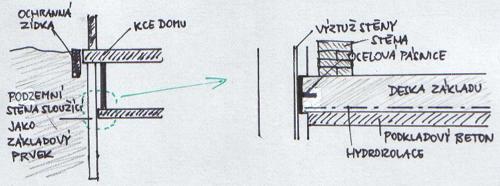 OCHRANNÁ
ZÍDKA
KCE DOMU
PODZEMNÍ
STĚNA SLOUŽÍCÍ
JAKO
ZÁKLADOVÝ
PRVEK
VÝZTUŽ STĚNY
STĚNA
OCELOVÁ PÁSNICE
DESKA ZÁKLADU
PODKLADOVÝ BETON
HYDROIZOLACE